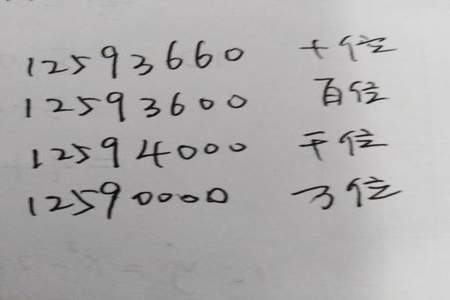 12593660 十位
12593600 百位
12594000 千位
12590000 万位